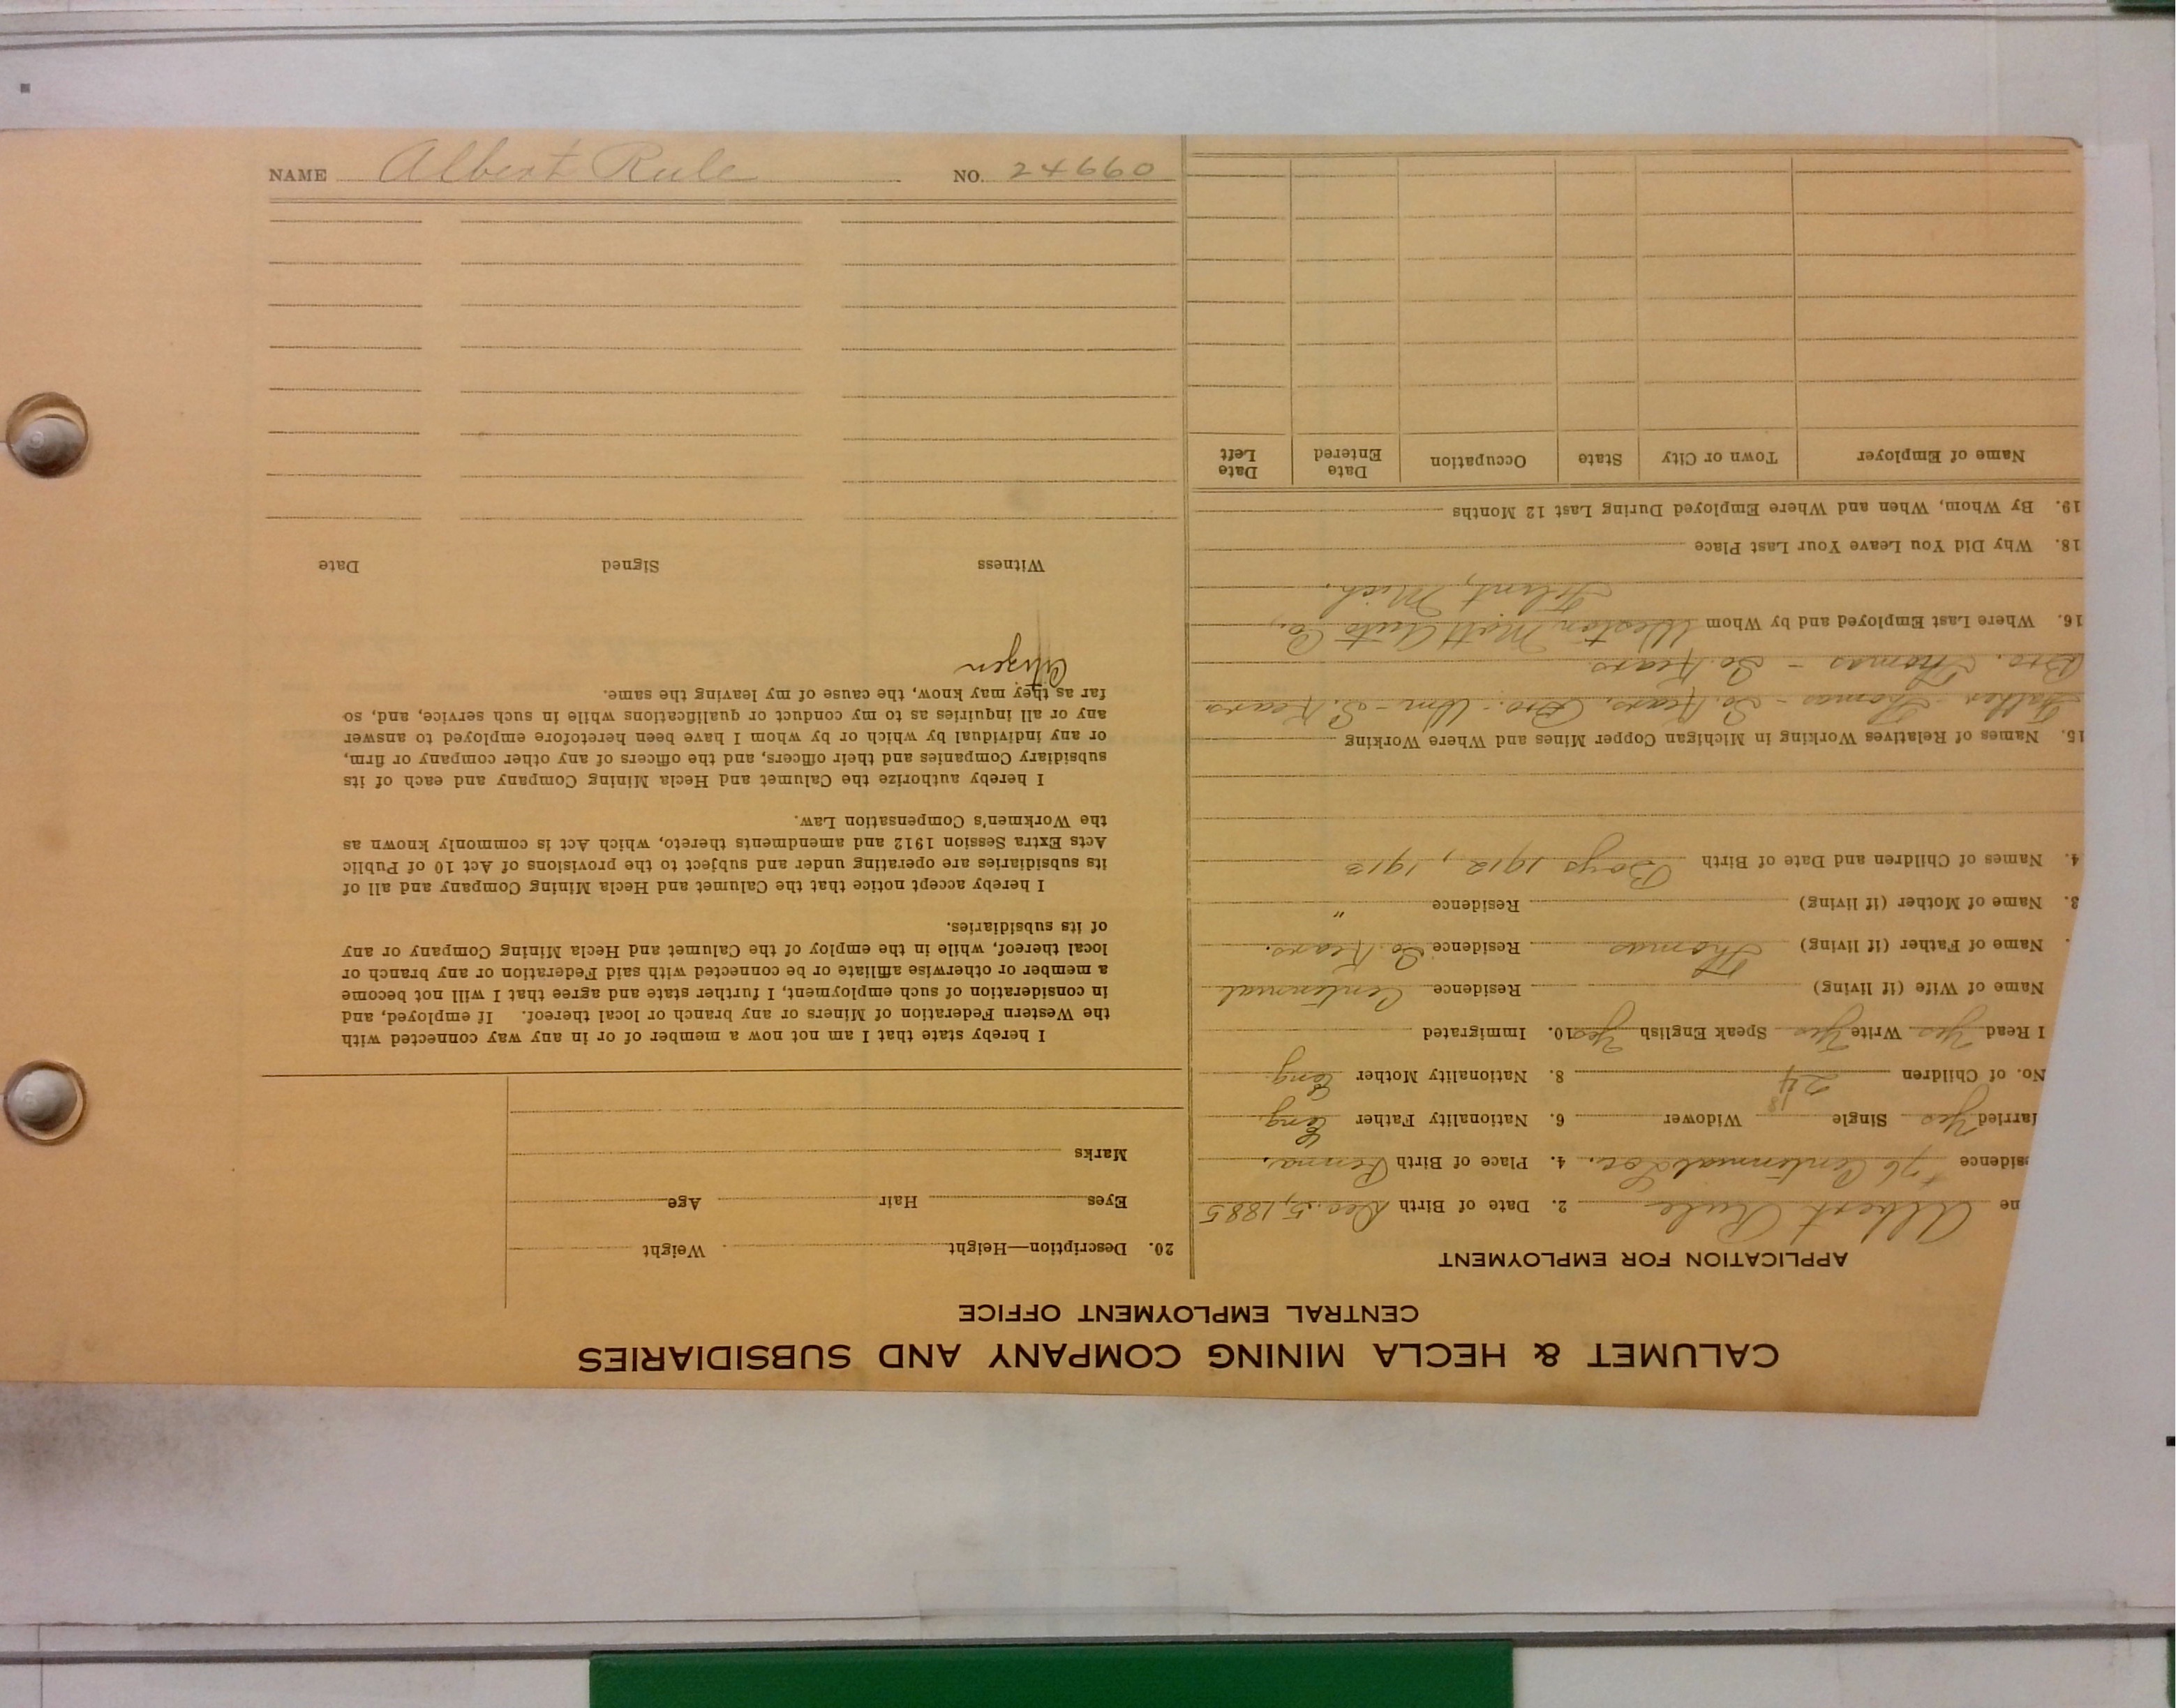 CALUMET & HECLA MINING COMPANY AND SUBSIDIARIES
CENTRAL EMPLOYMENT OFFICE
APPLICATION FOR EMPLOYMENT
me Albert Rule 2. Date of Birth Dec. 5, 1885
sidence #76 Centennial Loc. 4. Place of Birth Penna.
arried Yes Single Widower 6. Nationality Father Eng.
No. of Children 2 8. Nationality Mother Eng.
I Read Yes Write Yes Speak English Yes 10. Immigrated
Name of Wife (if living) Residence Centennial
. Name of Father (if living) Thomas Residence So. Kears.
3. Name of Mother (if living) Residence "
4. Names of Children and Date of Birth Boys 1912, 1913
15. Names of Relatives Working in Michigan Copper Mines and Where Working
Father - Thomas - So. Kears. Bro. - Wm - S. Kears
Bro. Thomas - So. Kears
16. Where Last Employed and by Whom Weston Mott Auto Co.,
Flint, Mich.
18. Why Did You Leave Your Last Place
19. By Whom, When and Where Employed During Last 12 Months
Name of Employer Town or City State Occupation Date Entered Date Left
20. Description—Height Weight
Eyes Hair Age
Marks
I hereby state that I am not now a member of or in any way connected with
the Western Federation of Miners or any branch or local thereof. If employed, and
in consideration of such employment, I further state and agree that I will not become
a member or otherwise affiliate or be connected with said Federation or any branch or
local thereof, while in the employ of the Calumet and Hecla Mining Company or any
of its subsidiaries.
I hereby accept notice that the Calumet and Hecla Mining Company and all of
its subsidiaries are operating under and subject to the provisions of Act 10 of Public
Acts Extra Session 1912 and amendments thereto, which Act is commonly known as
the Workmen's Compensation Law.
I hereby authorize the Calumet and Hecla Mining Company and each of its
subsidiary Companies and their officers, and the officers of any other company or firm,
or any individual by which or by whom I have been heretofore employed to answer
any or all inquiries as to my conduct or qualifications while in such service, and, so
far as they may know, the cause of my leaving the same.
Citizen
Witness Signed Date
NAME Albert Rule NO. 24660